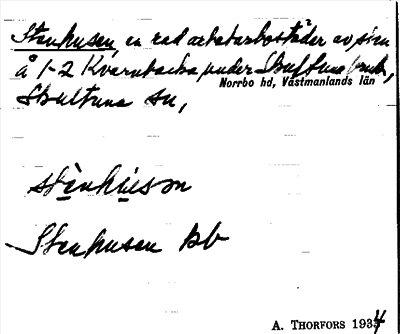 Stenhusen, en rad arbetarbostäder av sten
å 1-2 Kvarnbacka under Skultuna bruk,
Norrbo hd, Västmanlands län
Skultuna sn,
stènhusɔn
Stenhusen bb
A. THORFORS 1934